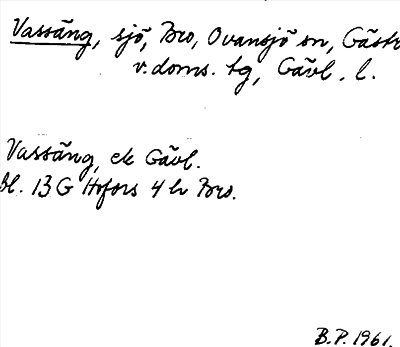 Vassäng, sjö, Bro, Ovansjö sn, Gästr
v. doms. tg, Gävl. l.
Vassäng, ek Gävl.
Bl. 13 G Hofors 4 h Bro.
B.P. 1961.